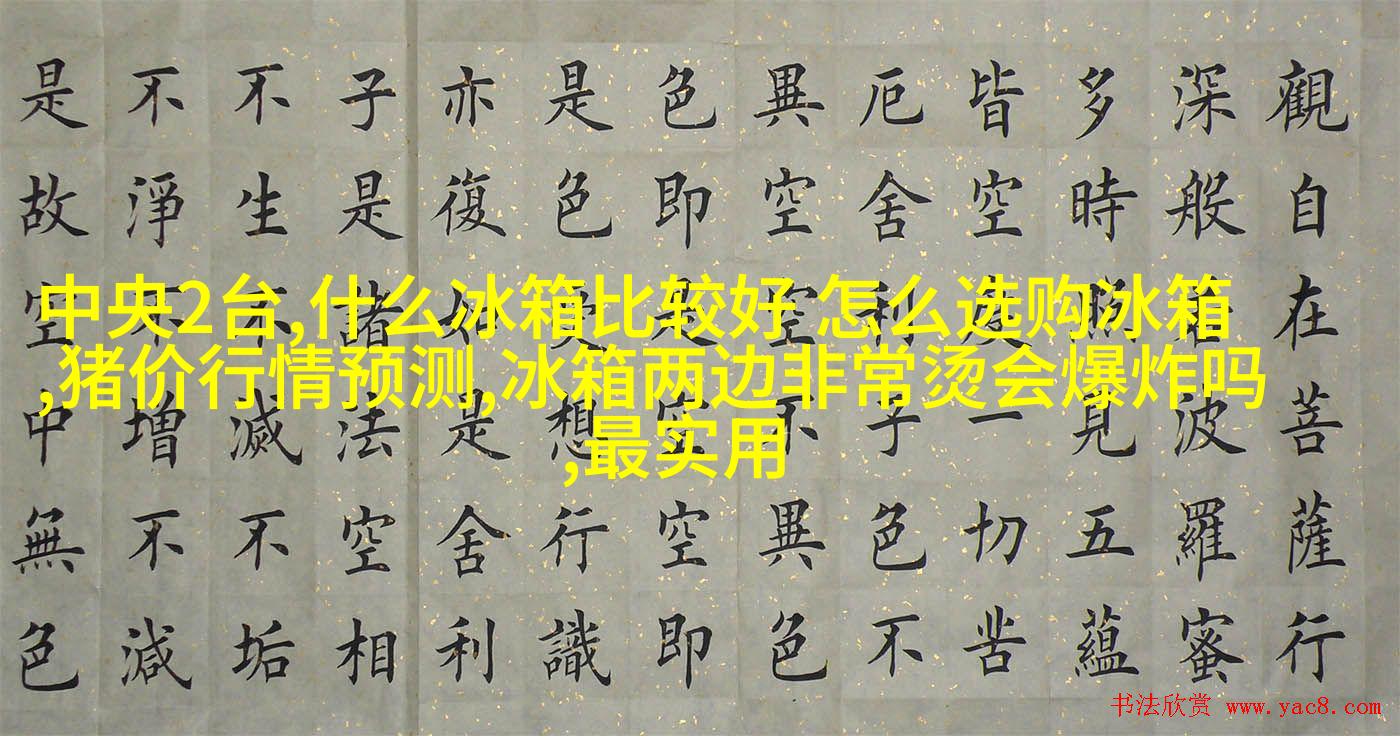 觀自在菩薩行
深般若波羅蜜
多時照見五蘊
皆空度一切苦
厄舍利子色不
異空空不異色
色即是空空即
是色受想行識
亦復如是舍利
子是諸法空相
不生不滅不垢
不淨不增不減
是故空中無色
中央2台,什么冰箱比较好 怎么选购冰箱
,猪价行情预测,冰箱两边非常烫会爆炸吗
,最实用
书法欣赏 www.yac8.com